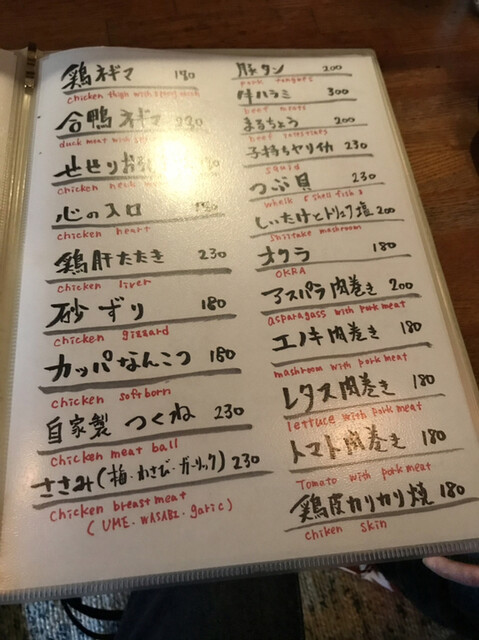 鶏ネギマ 180
chicken thigh with spring onion
合鴨ネギマ 230
duck meat with
せせりお
chicken neck
心の入口
chicken heart
鶏肝たたき 230
chicken liver
砂ずり 180
chicken gizzard
カッパなんこつ 180
chicken softborn
自家製つくね 230
chicken meat ball
ささみ(梅・わさび・ガーリック) 230
chicken breast meat
(UME. WASABI. garic)
豚タン 200
pork tongues
牛ハラミ 300
beef
まるちょう 200
beef
子持ちヤリイカ 230
squid
つぶ貝 230
whelk & shell fish
しいたけとトリュフ塩 200
shiitake mashroom
オクラ 180
OKRA
アスパラ肉巻き 200
asparagass with pork meat
エノキ肉巻き 180
mashroom with pork meat
レタス肉巻き 180
lettuce with pork meat
トマト肉巻き 180
Tomato with pork meat
鶏皮カリカリ焼 180
chiken skin